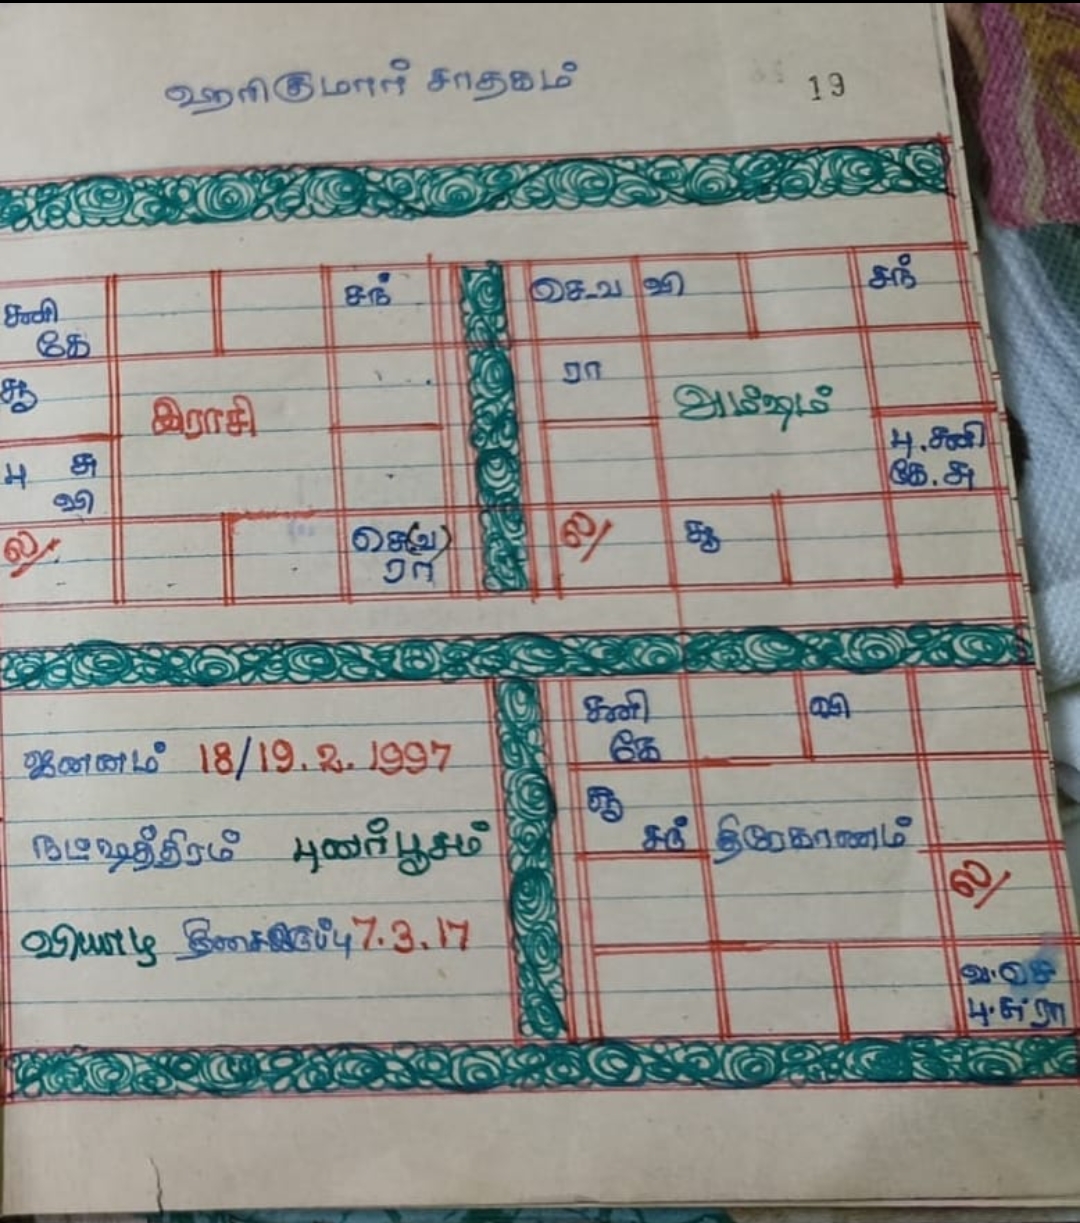 ஹரிகுமார் சாதகம்
19
சனி
கே
சந்
சூ
இராசி
பு சு
வி
ல/
செ(வ)
ரா
செ.வ வி
சந்
ரா
அம்ஷம்
பு.சனி
கே.சு
ல/
சூ
ஜனனம் 18/19.2.1997
நட்ஷத்திரம் புணர்பூசம்
வியாழ திசைஇருப்பு 7.3.17
சனி
கே
வி
சூ
சந் திரேகாணம்
ல/
வ.செ
பு.சு.ரா